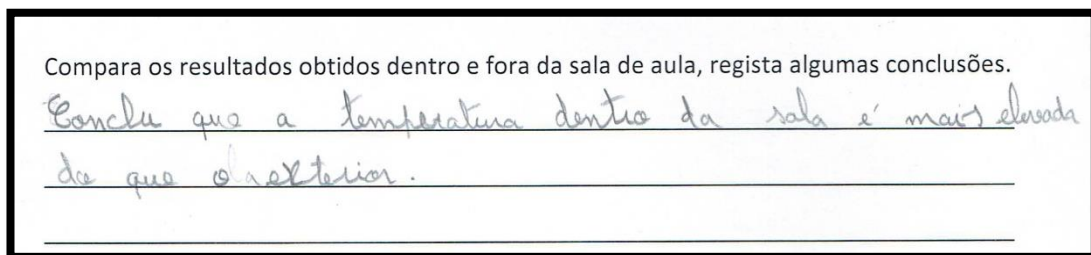 Compara os resultados obtidos dentro e fora da sala de aula, regista algumas conclusões.
Conclu que a temperatura dentro da sala é mais elevada
do que o exterior.